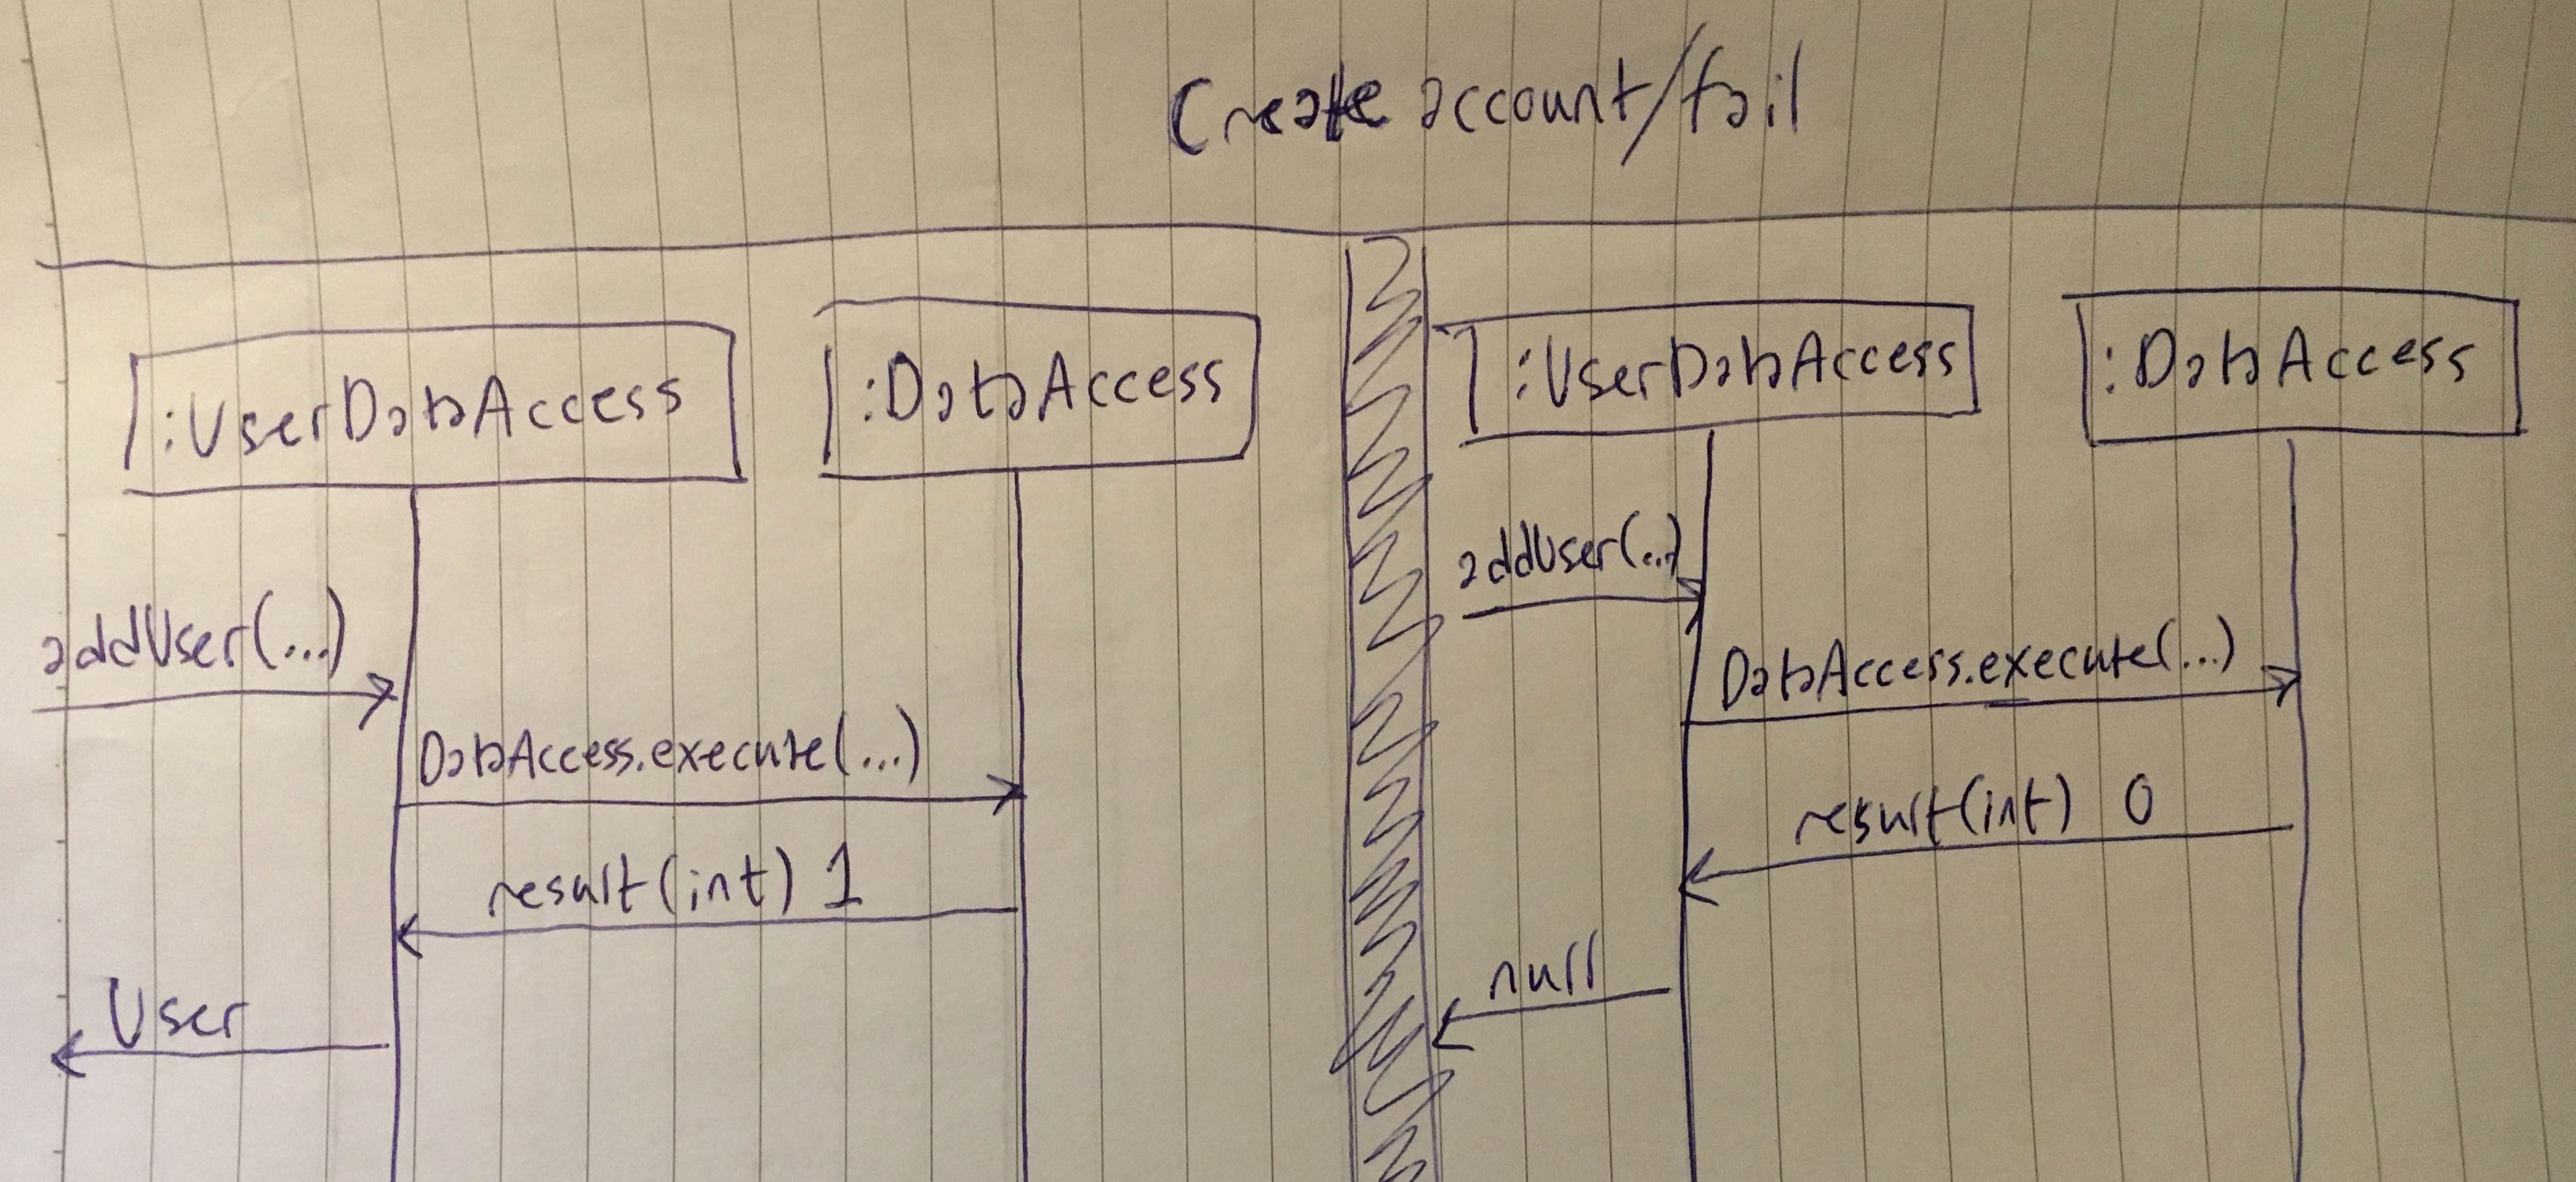 Create account/fail
:UserDataAccess
:DataAccess
addUser(...)
DataAccess.execute(...)
result(int) 1
User
:UserDataAccess
:DataAccess
addUser(...)
DataAccess.execute(...)
result(int) 0
null